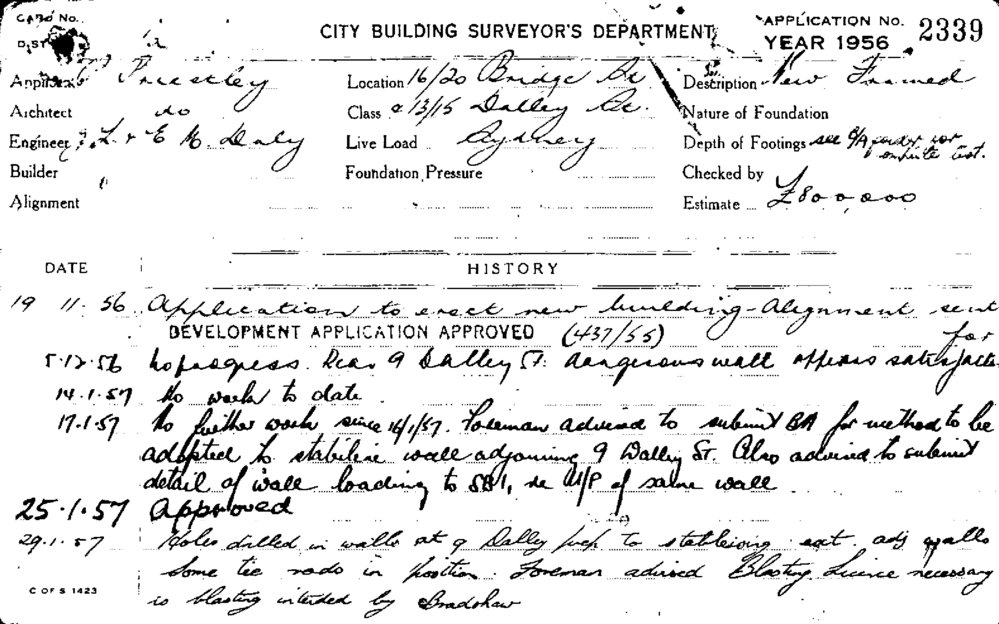 CARD No.
CITY BUILDING SURVEYOR'S DEPARTMENT
APPLICATION No. 2339
DIST
YEAR 1956
Applicant Priestley Location 16/20 Bridge St Description New Framed
Architect do Class & 13/15 Dalley St. Nature of Foundation
Engineer L. & E M. Daly Live Load Sydney Depth of Footings see
Builder Foundation Pressure Checked by
Alignment Estimate £800,000
DATE HISTORY
19 11.56 Application to erect new building - Alignment sent for
DEVELOPMENT APPLICATION APPROVED (437/55)
5.12.56 No progress. Rear 9 Dalley St. dangerous wall appears satisfact.
14.1.57 No work to date
17.1.57 No further work since 16/1/57. Foreman advised to submit BA for method to be
adopted to stabilise wall adjoining 9 Dalley St. Also advised to submit
detail of wall loading to SBI, re U/P of same wall
25.1.57 Approved
29.1.57 Holes drilled in walls at 9 Dalley prep to stabilising exst. adj walls
Some tie rods in position. Foreman advised Blasting Licence necessary
is blasting intended by Bradshaw
C OF S 1423